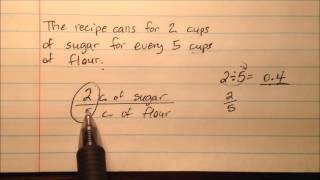 The recipe calls for 2 cups
of sugar for every 5 cups
of flour.
2÷5 = 0.4
2 c. of sugar
5 c. of flour
2
5